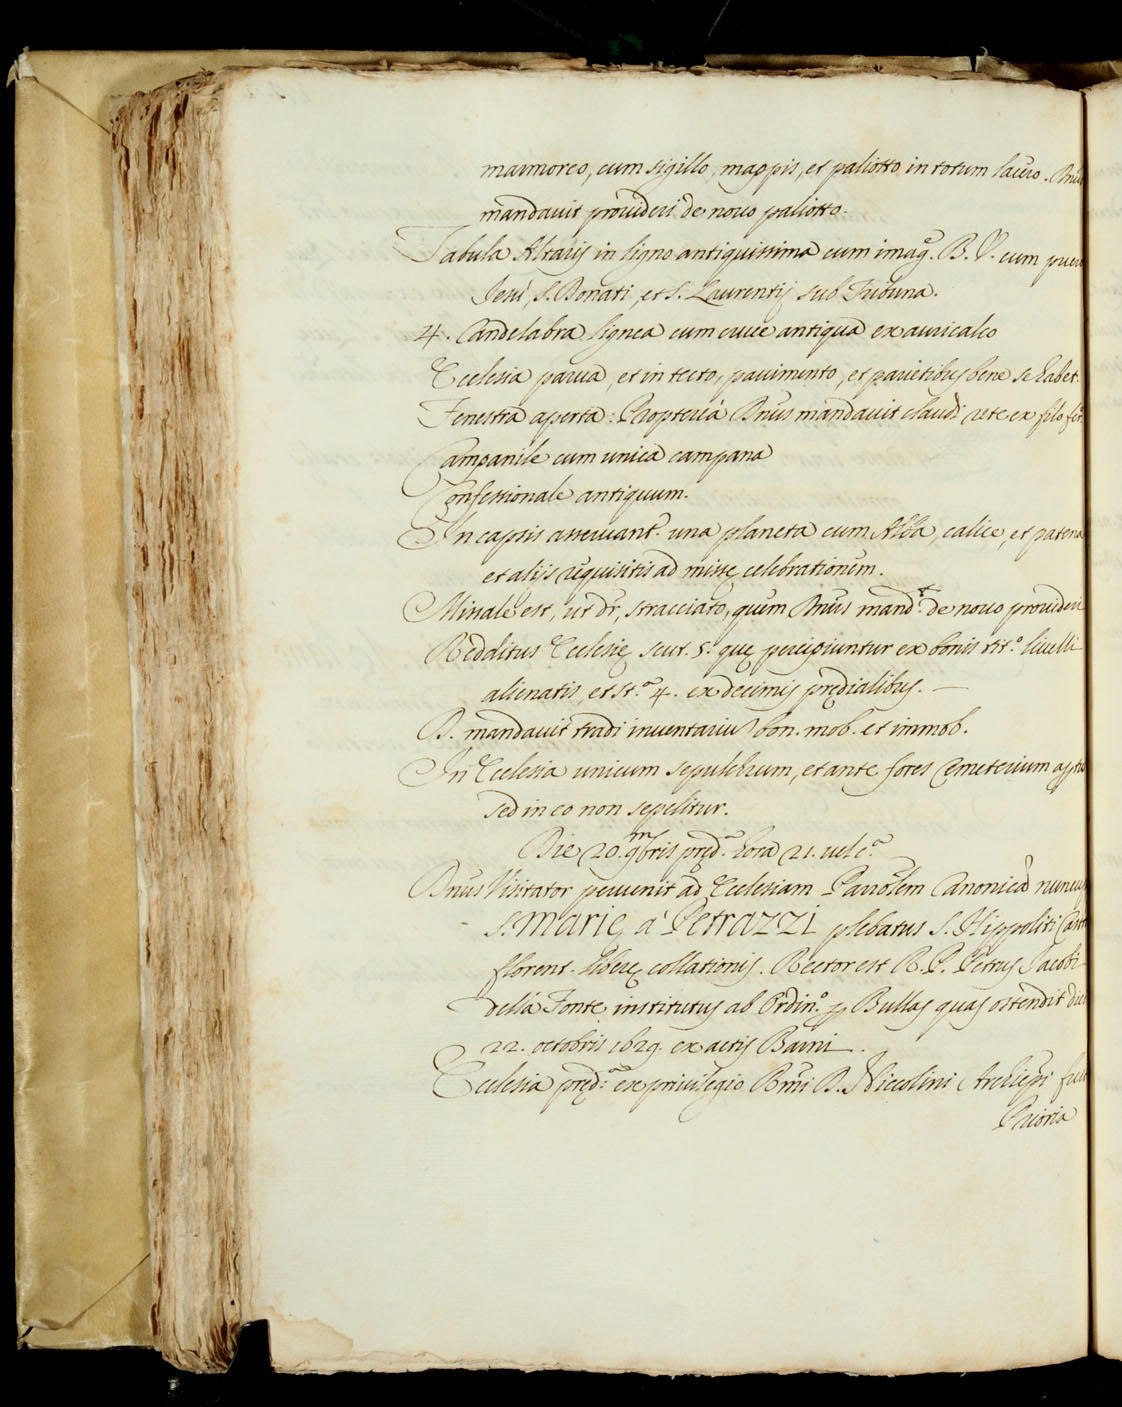 marmoreo, cum sigillo, mappis, et paliotto in totum lacero. Dnus
mandavit provideri de novo paliotto.
Tabula Altaris in ligno antiquissima cum imag.e B. V. cum puero
Jesu, S. Donati, et S. Laurentij sub Tribuna.
4. Candelabra lignea cum cruce antiqua ex auricalco
Ecclesia parva, et in tecto, pavimento, et parietibus bene se habet.
Fenestra aperta: Propterea Dnus mandavit claudi rete ex filo fer.
Campanile cum unica campana
Confessionale antiquum.
In capsis asservant.r una planeta cum Alba, calice, et patena
et alijs requisitis ad missę celebrationem.
Missale est, ut dr, stracciato, quem Dnus mand.t de novo provideri
Redditus Ecclesię scut. 5. quę percipiuntur ex bonis tit.o livelli
alienatis, et st.a 4. ex decimis prędialibus. —
D. mandavit tradi inventariu bon. mob. et immob.
In Ecclesia unicum sepulchrum, et ante fores Cęmeterium
sed in eo non sepelitur.
Die 20. 9mbris pręd.a hora 21. vel c.a
Dnus Visitator pervenit ad Ecclesiam Parrolem Canonica nuncup
S. Marię a' Petrazzi plebatus S. Hippoliti Cast
florent. liberę collationis. Rector est R. P. Petrus Jacobi
della Fonte institutus ab Ordin.o p Bullas quas ostendit
22. octobris 1629. ex actis Barni.
Ecclesia pręd.a ex privilegio Rmi D. Niccolini Archiepi fuit
Prioria